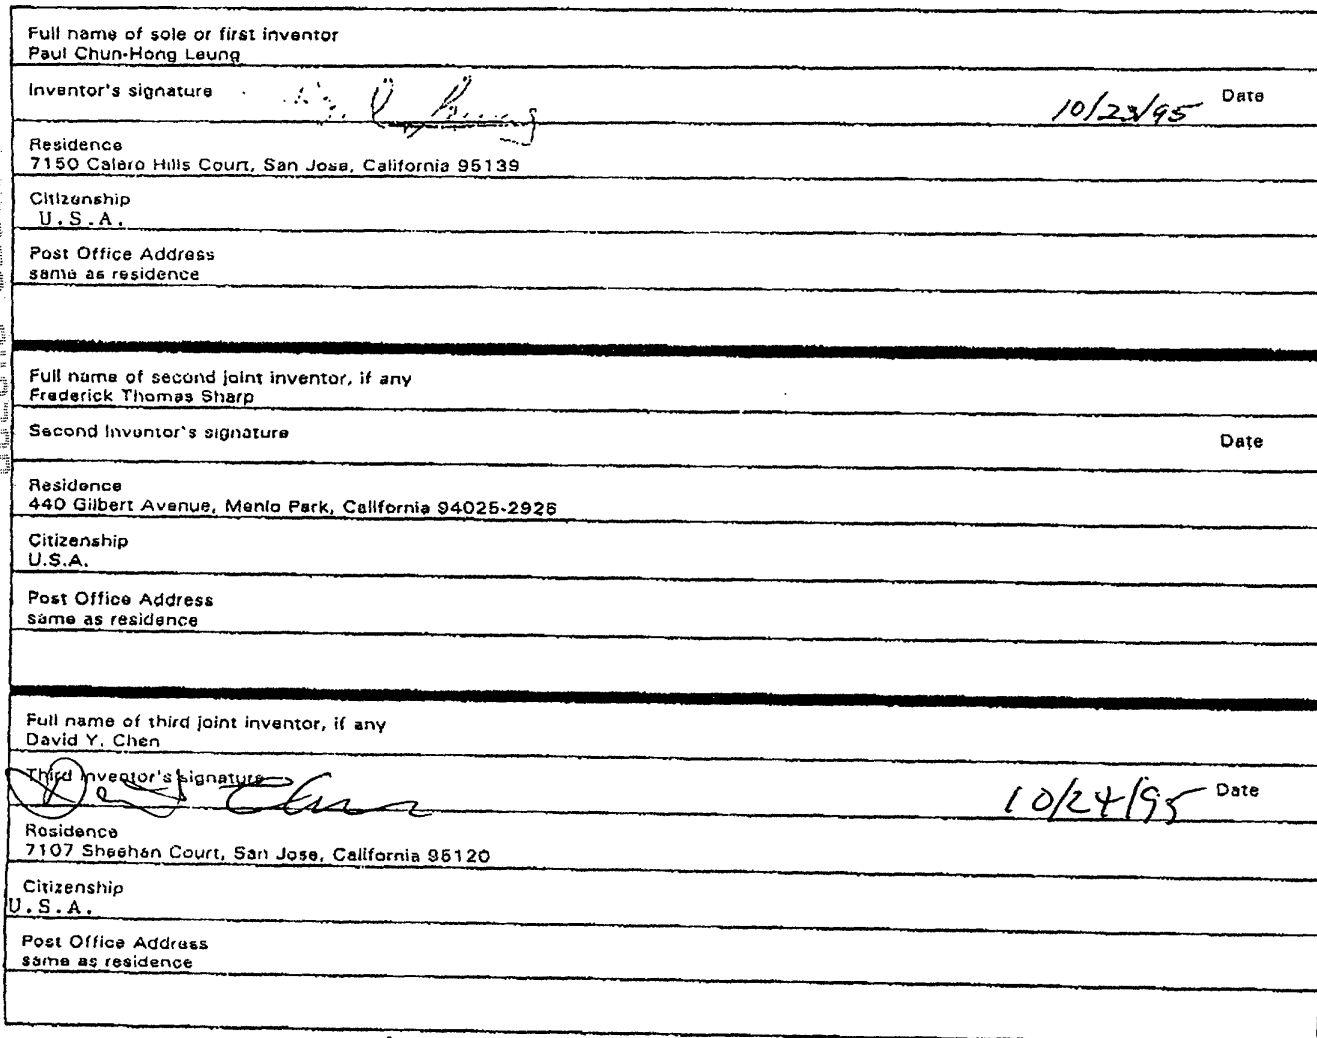 Full name of sole or first inventor
Paul Chun-Hong Leung
Inventor's signature
10/23/95 Date
Residence
7150 Calero Hills Court, San Jose, California 95139
Citizenship
U.S.A.
Post Office Address
same as residence
Full name of second joint inventor, if any
Frederick Thomas Sharp
Second Inventor's signature Date
Residence
440 Gilbert Avenue, Menlo Park, California 94025-2926
Citizenship
U.S.A.
Post Office Address
same as residence
Full name of third joint inventor, if any
David Y. Chen
Third Inventor's signature
David Chen 10/24/95 Date
Residence
7107 Sheehan Court, San Jose, California 95120
Citizenship
U.S.A.
Post Office Address
same as residence